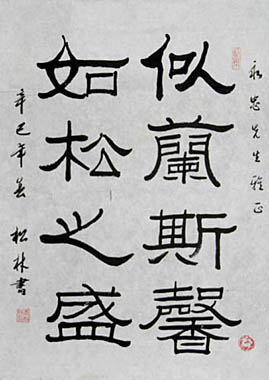 永忠先生雅正
似蘭斯馨
如松之盛
辛巳年春 松林書